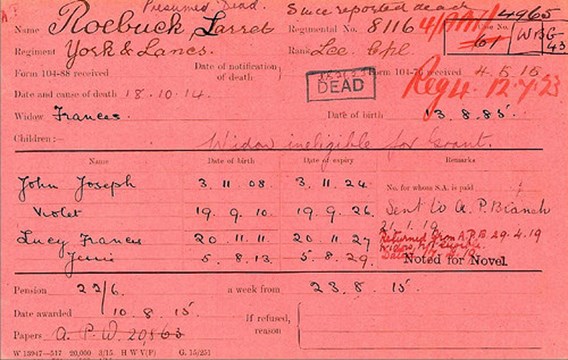 Presumed Dead. Since reported dead
Name Roebuck, Jarret Regimental No. 8116 4/ 4965
Regiment York & Lancs. Rank Lce. Cpl No. 61 W.B.G. 43
Form 104-88 received Date of notification of death Form 104-76 received 4.5.15
DEAD
Reg 4. 12.4.23
Date and cause of death 18.10.14.
Widow Frances. Date of birth 13.8.85.
Children:— Widow ineligible for Grant.
Name Date of birth Date of expiry Remarks
John Joseph 3.11.08. 3.11.24. No. for whom S.A. is paid
Violet 19.9.10. 19.9.26. Sent to A.P. Branch
21.1.19
Lucy Frances 20.11.11. 20.11.27 Returned from A.P.B. 29.4.19
5.8.13. 5.8.29. Noted for Novel.
Pension 22/6. a week from 23.8.15.
Date awarded 10.8.15. If refused, reason
Papers A.P.W. 20563
W 13947—517 20,000 3/15. H W V(P) G. 15/251